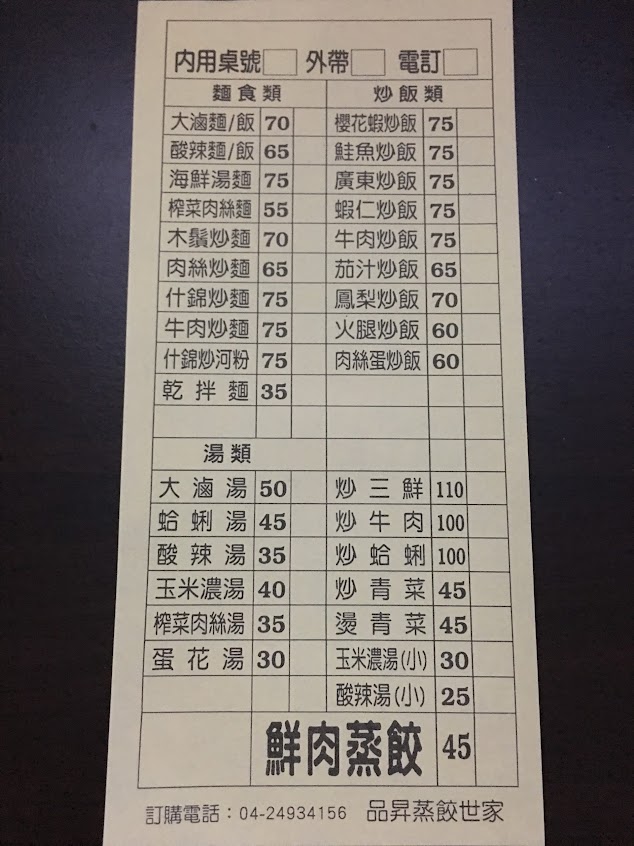 內用桌號 外帶 電訂
麵食類 炒飯類
大滷麵/飯 70 櫻花蝦炒飯 75
酸辣麵/飯 65 鮭魚炒飯 75
海鮮湯麵 75 廣東炒飯 75
榨菜肉絲麵 55 蝦仁炒飯 75
木鬚炒麵 70 牛肉炒飯 75
肉絲炒麵 65 茄汁炒飯 65
什錦炒麵 75 鳳梨炒飯 70
牛肉炒麵 75 火腿炒飯 60
什錦炒河粉 75 肉絲蛋炒飯 60
乾拌麵 35
湯類
大滷湯 50 炒三鮮 110
蛤蜊湯 45 炒牛肉 100
酸辣湯 35 炒蛤蜊 100
玉米濃湯 40 炒青菜 45
榨菜肉絲湯 35 燙青菜 45
蛋花湯 30 玉米濃湯(小) 30
酸辣湯(小) 25
鮮肉蒸餃 45
訂購電話：04-24934156 品昇蒸餃世家